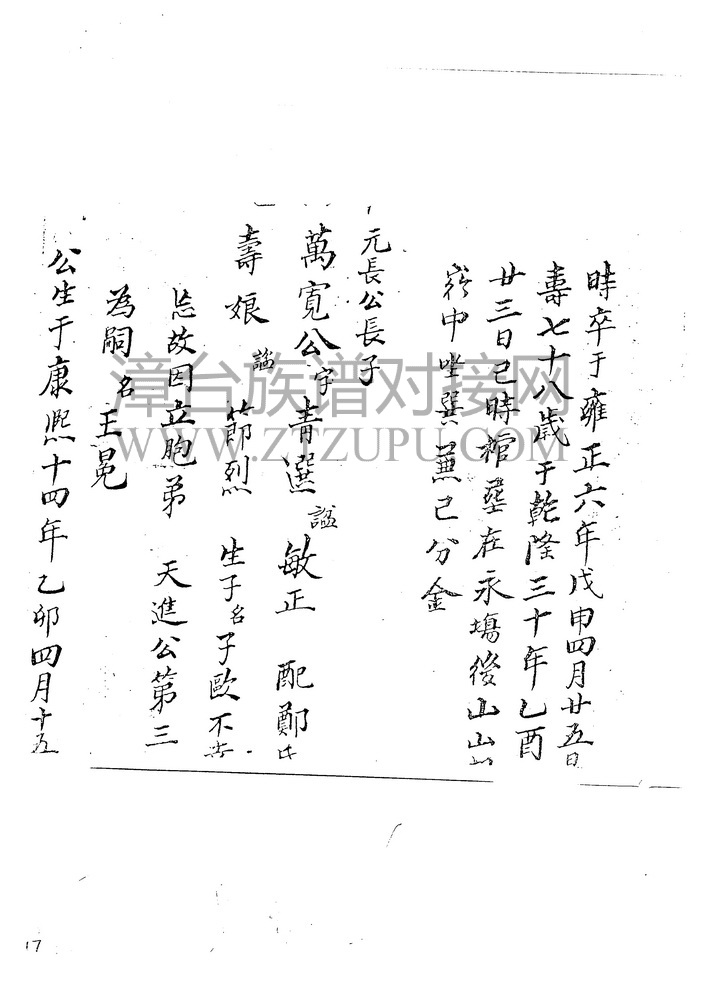 時卒于雍正六年戊申四月廿五日
壽七十八歲于乾隆三十年乙酉
廿三日巳時棺塟在永塲後山山
中坐巽兼己分金
元長公長子
萬寬公字青選諡敏正 配鄭氏
壽娘諡節烈 生子名子歐不
故因立胞弟 天進公第三
為嗣名王晃
公生于康熙十四年乙卯四月十五
漳台族谱对接网
WWW.ZTZUPU.COM
17